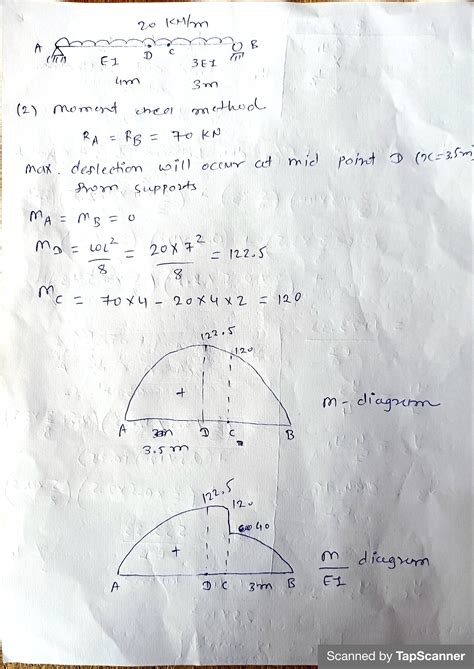 20 KN/m
A D C B
EI 3EI
4m 3m
(2) Moment area method
RA = RB = 70 KN
max. deflection will occur at mid point D (x=3.5m)
from supports
MA = MB = 0
MD = wL²/8 = 20×7²/8 = 122.5
MC = 70×4 - 20×4×2 = 120
122.5
120
+
A D C B
3.5m
M - diagram
122.5
120
40
+
A D C 3m B
M/EI diagram
Scanned by TapScanner